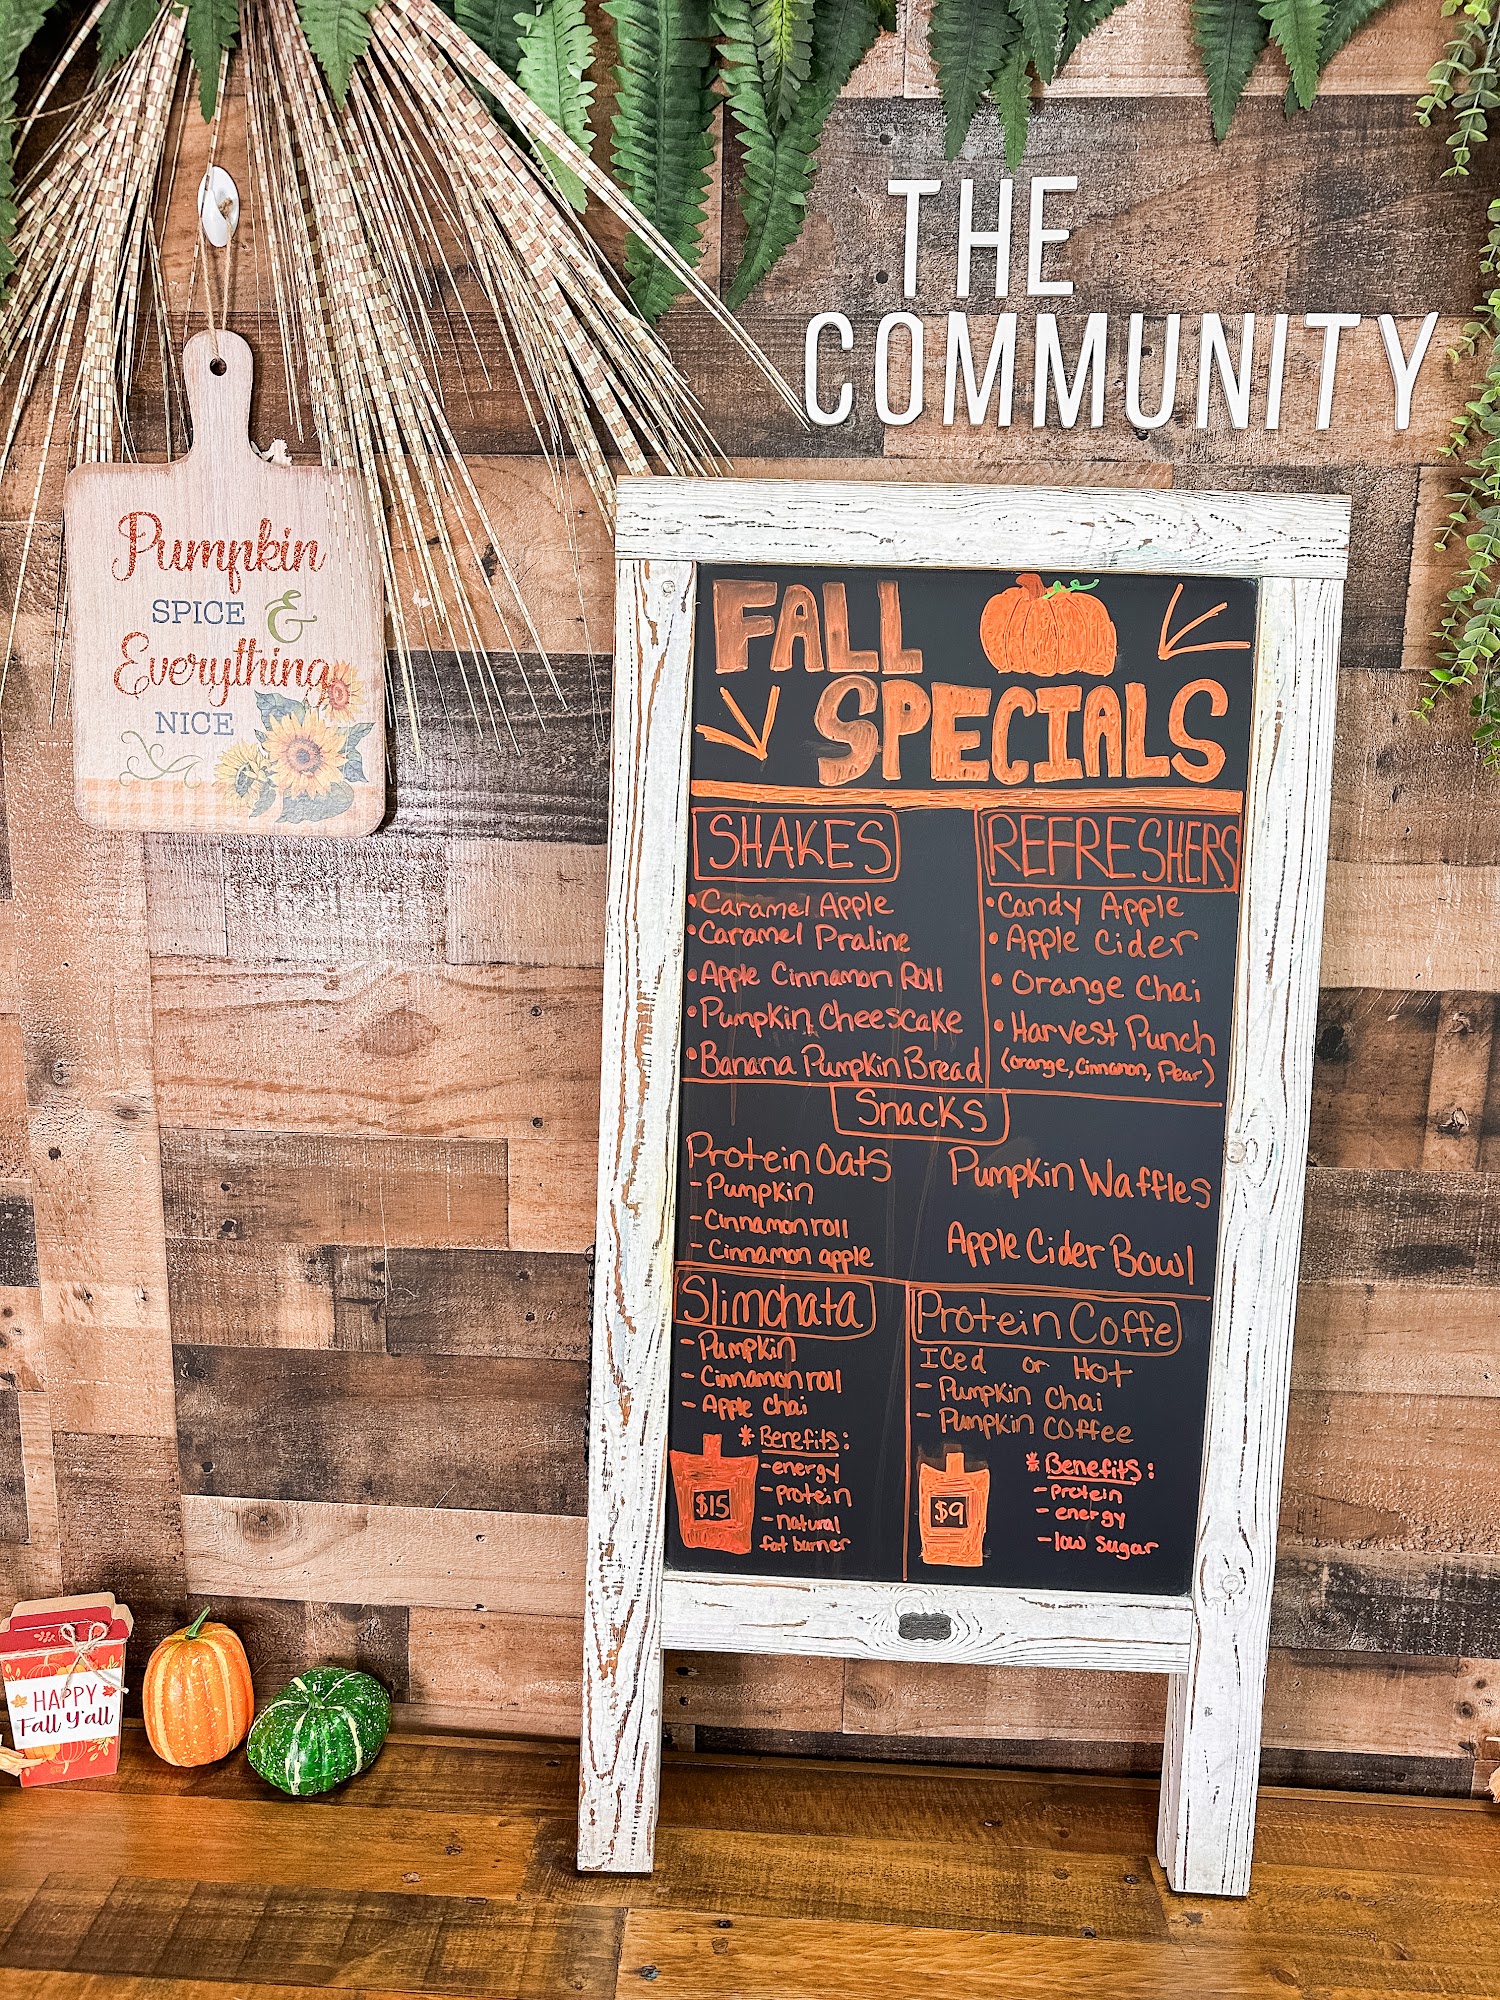 THE
COMMUNITY
Pumpkin
SPICE &
Everything
NICE
FALL
SPECIALS
SHAKES
•Caramel Apple
•Caramel Praline
•Apple Cinnamon Roll
•Pumpkin Cheescake
•Banana Pumpkin Bread
REFRESHERS
•Candy Apple
•Apple Cider
•Orange Chai
•Harvest Punch
(orange, Cinnamon, Pear)
Snacks
Protein Oats
-Pumpkin
-Cinnamon roll
-Cinnamon apple
Pumpkin Waffles
Apple Cider Bowl
Slimchata
-Pumpkin
-Cinnamon roll
-Apple Chai
*Benefits:
-energy
-protein
-natural
fat burner
$15
Protein Coffe
Iced or Hot
-Pumpkin Chai
-Pumpkin Coffee
*Benefits:
-protein
-energy
-low sugar
$9
HAPPY
Fall Y'all